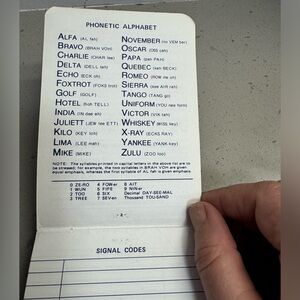 PHONETIC ALPHABET
ALFA (AL fah) NOVEMBER (no VEM ber)
BRAVO (BRAH VOH) OSCAR (OSS cah)
CHARLIE (CHAR lee) PAPA (pah PAH)
DELTA (DELL tah) QUEBEC (keh BECK)
ECHO (ECK oh) ROMEO (ROW me oh)
FOXTROT (FOKS trot) SIERRA (see AIR rah)
GOLF (GOLF) TANGO (TANG go)
HOTEL (hoh TELL) UNIFORM (YOU nee form)
INDIA (IN dee ah) VICTOR (VIK tah)
JULIETT (JEW lee ETT) WHISKEY (WISS key)
KILO (KEY loh) X-RAY (ECKS RAY)
LIMA (LEE mah) YANKEE (YANK key)
MIKE (MIKE) ZULU (ZOO loo)
NOTE: The syllables printed in capital letters in the above list are to be
stressed; for example, the two syllables in BRAVO (BRAH VOH) are given
equal emphasis, whereas the first syllable of AL fah is given emphasis.
0 ZE-RO 4 FOWer 8 AIT
1 WUN 5 FIFE 9 NINer
2 TOO 6 SIX Decimal DAY-SEE-MAL
3 TREE 7 SEVen Thousand TOU-SAND
SIGNAL CODES